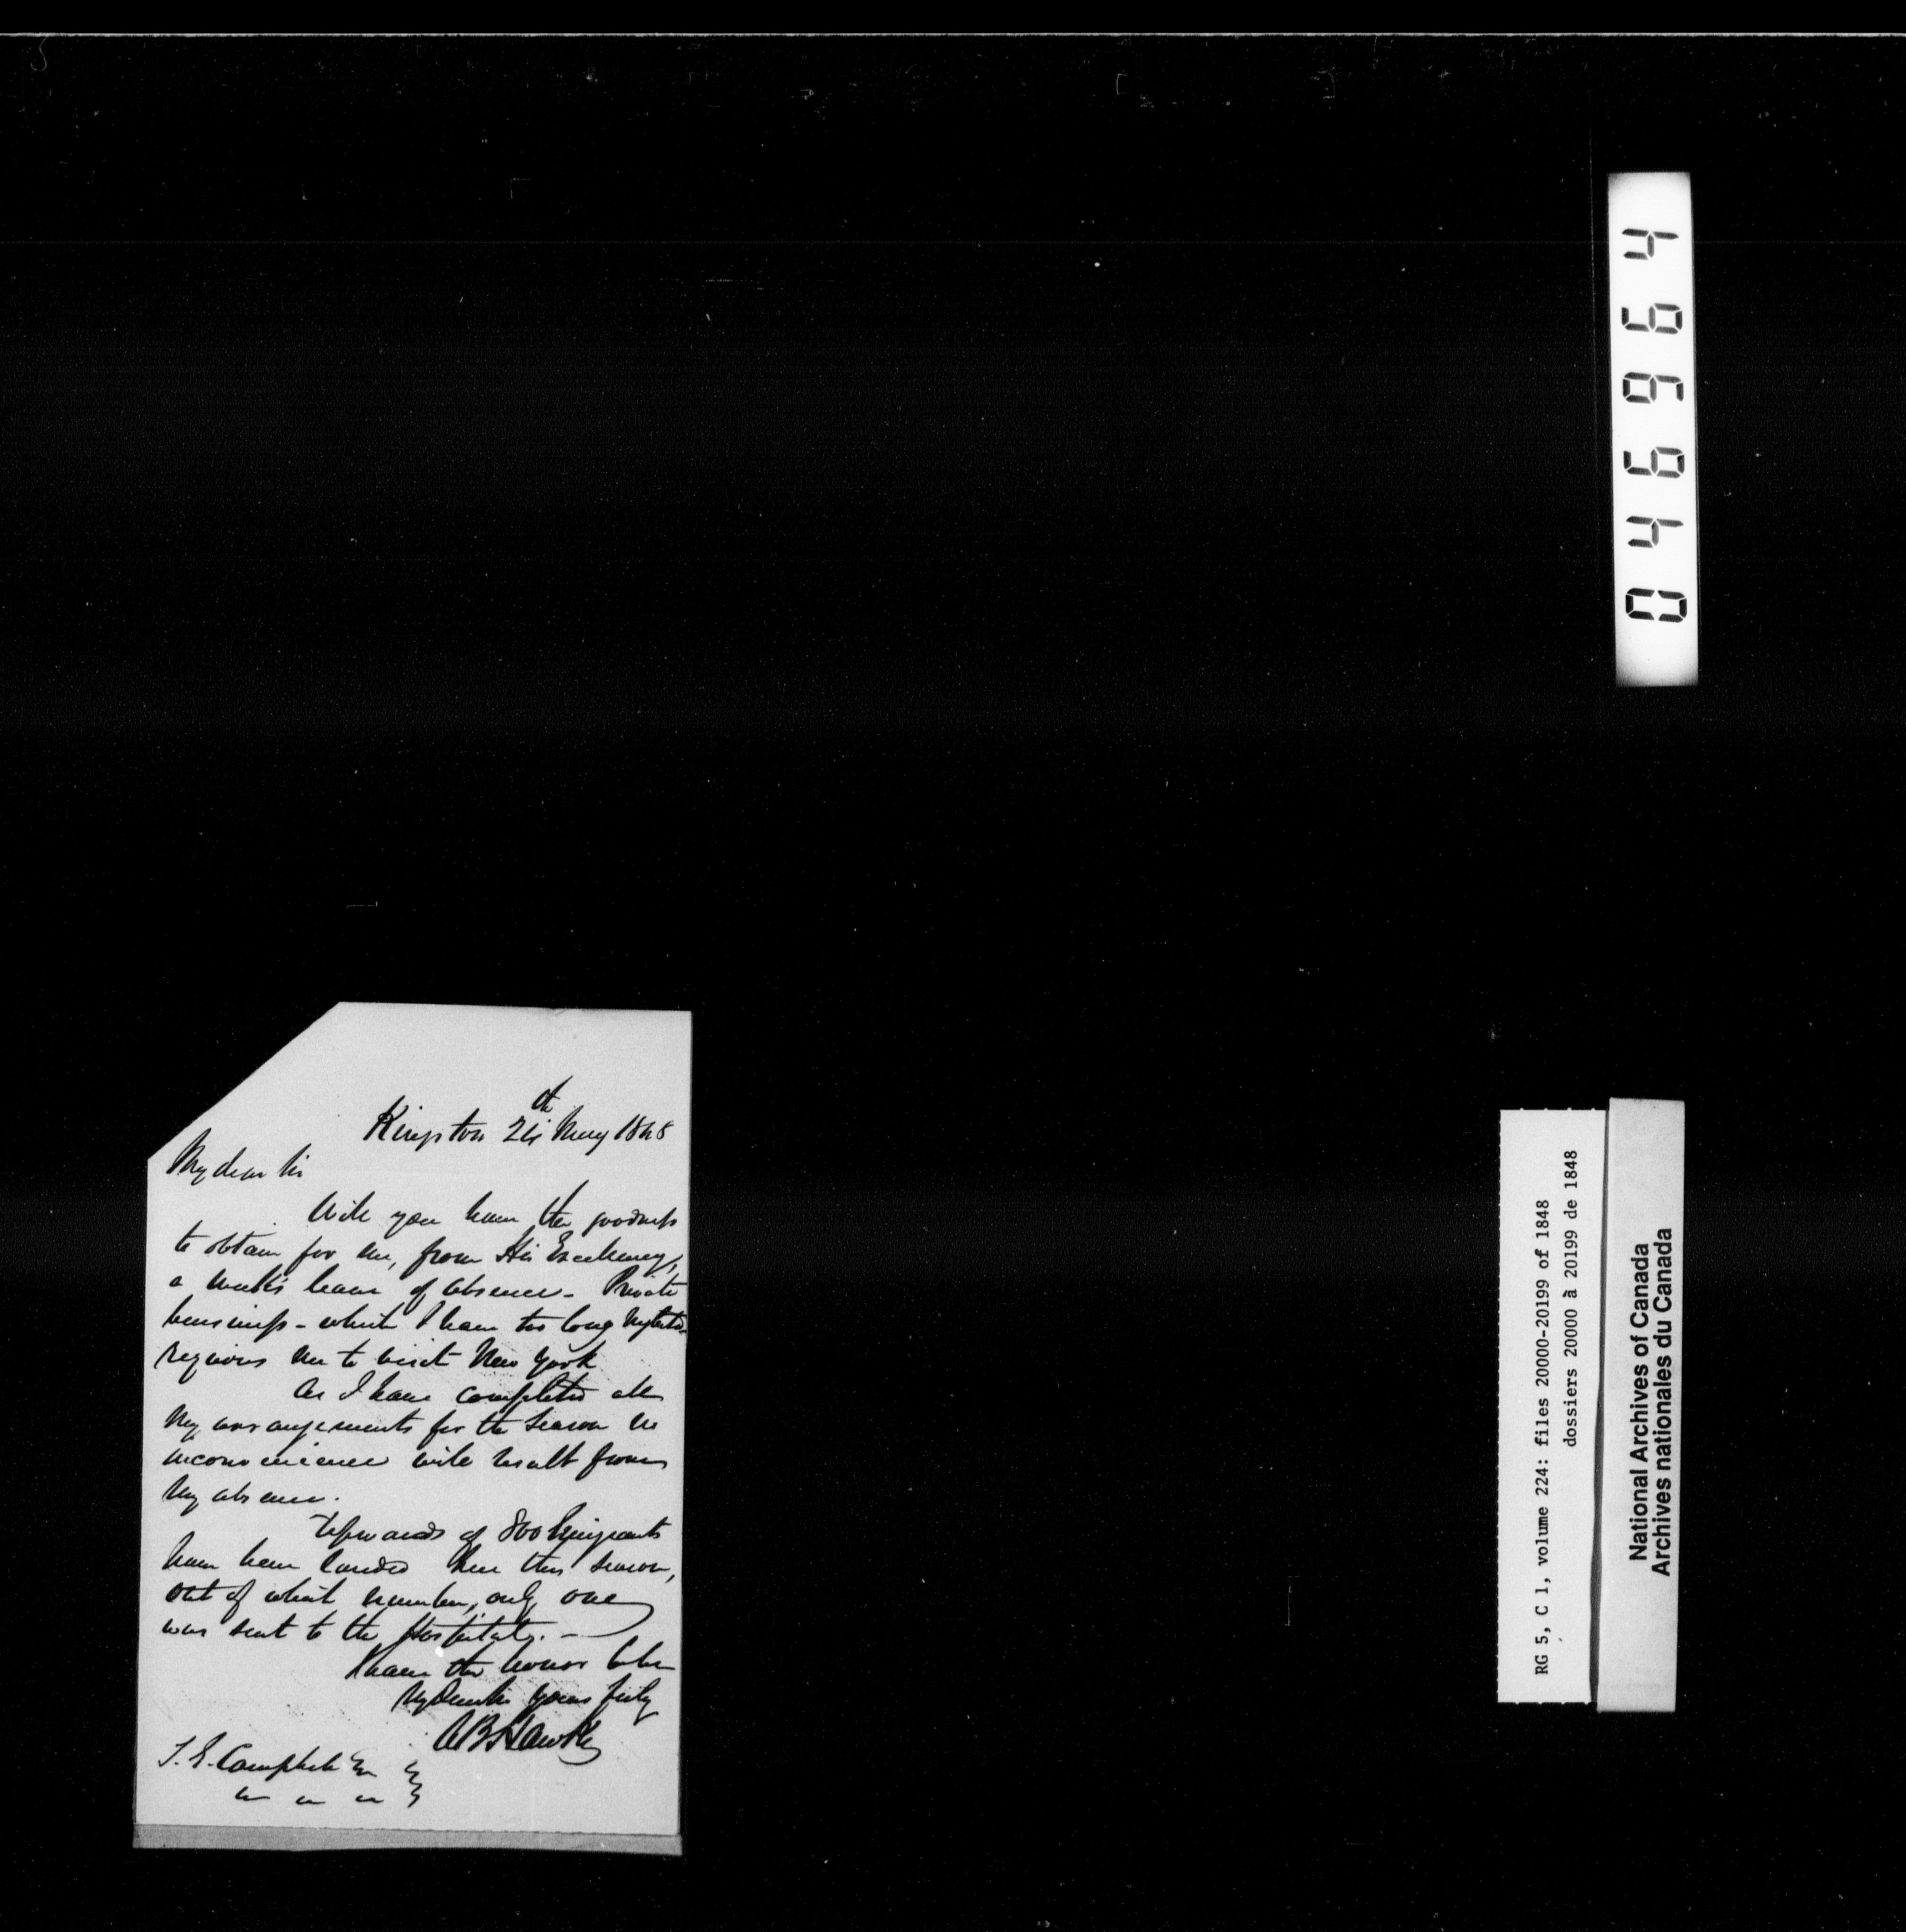 Kingston 24th May 1848
My dear Sir
Will you have the goodness
to obtain for me, from His Excellency,
a week's leave of absence - Private
business - which I have too long neglected
requires me to visit New York
As I have completed all
my arrangements for the season no
inconvenience will result from
my absence.
Upwards of 800 Emigrants
have been landed here this season,
out of which number, only one
was sent to the Hospital. -
I have the honor to be
My Dear Sir Yours truly
A B Hawke
T. E. Campbell Esq
046964
RG 5, C 1, volume 224: files 20000-20199 of 1848
dossiers 20000 à 20199 de 1848
National Archives of Canada
Archives nationales du Canada